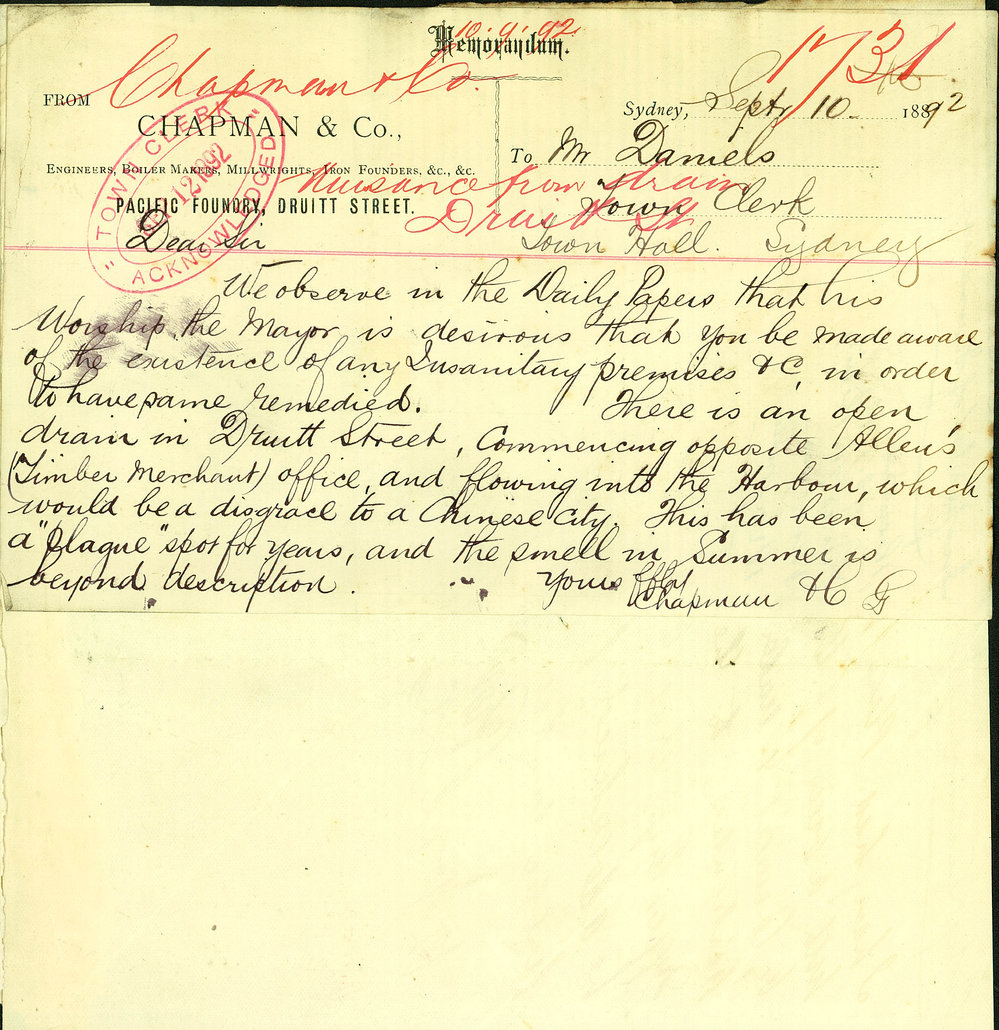 10.9.92
Memorandum.
1731
Chapman & Co.
FROM
CHAPMAN & Co.,
Engineers, Boiler Makers, Millwrights, Iron Founders, &c., &c.
PACIFIC FOUNDRY, DRUITT STREET.
"TOWN CLERK"
SEP 12 1892
ACKNOWLEDGED
Sydney, Septr 10 1892
To Mr Daniels
Town Clerk
Town Hall. Sydney
Nuisance from drain
Druitt St
Dear Sir
We observe in the Daily Papers that his
Worship the Mayor is desirous that you be made aware
of the existence of any Insanitary premises &c, in order
to have same remedied. There is an open
drain in Druitt Street, Commencing opposite Allen's
(Timber Merchant) office, and flowing into the Harbour, which
would be a disgrace to a Chinese City. This has been
a "plague" spot for years, and the smell in Summer is
beyond description. Yours ffly
Chapman & Co